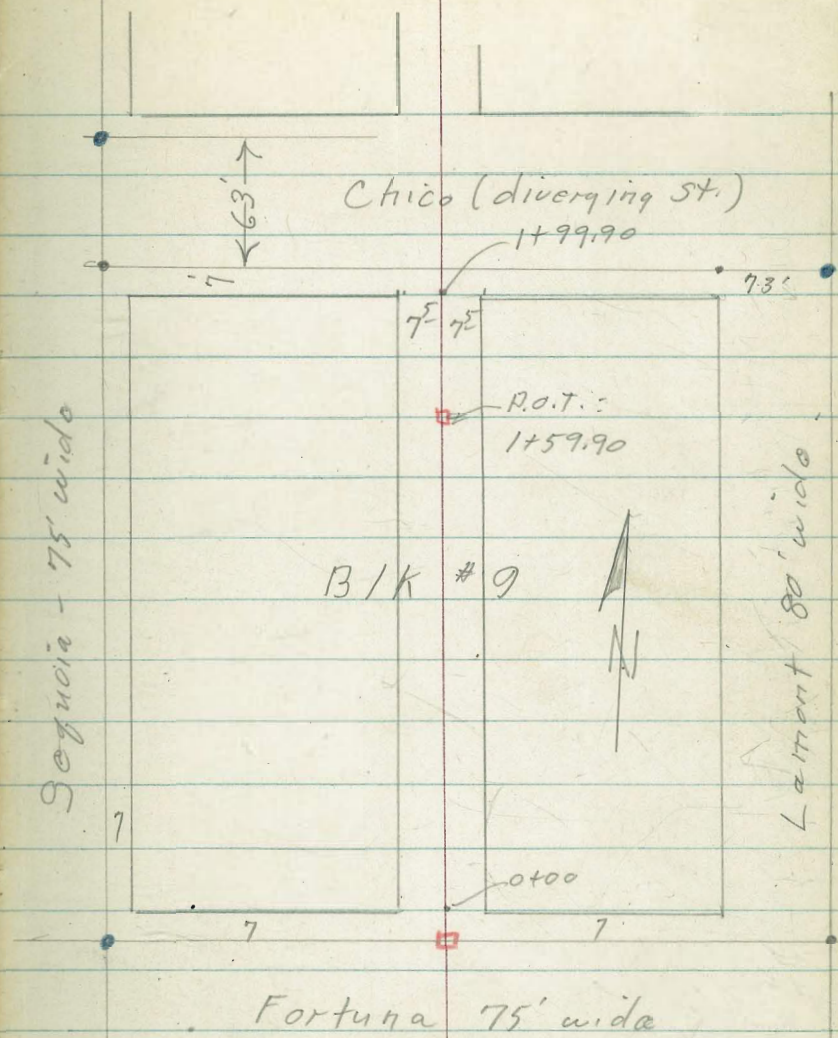 63'
Chico (diverging St.)
1+99.90
7
7.3'
7⁵ 7⁵
P.O.T. :
1+59.90
Sequoia - 75' wide
Blk #9
N
Lamont 80' wide
7
0+00
7
7
Fortuna 75' wide